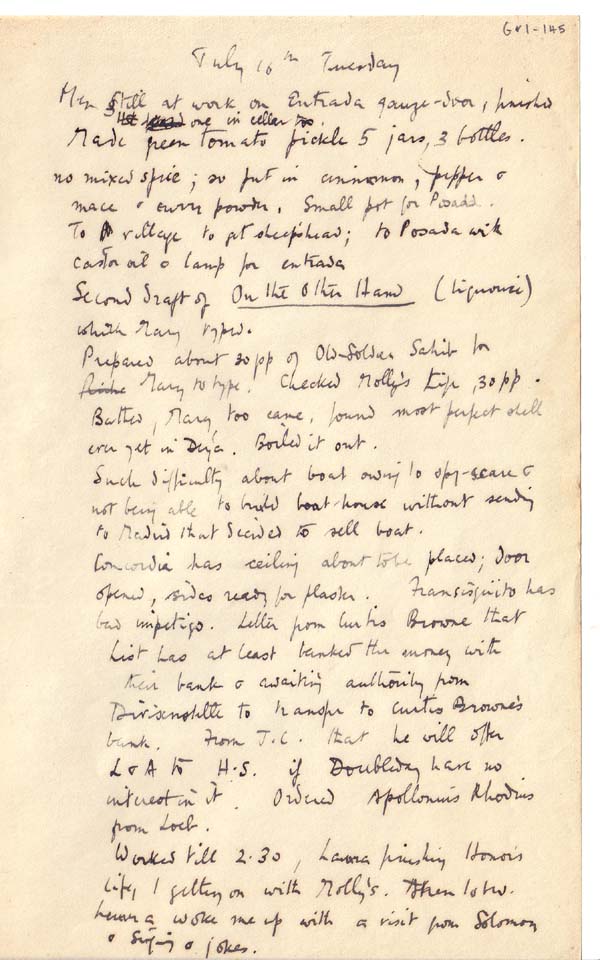 G&1-145
July 16th Tuesday
Men still at work on Entrada gauze-door, finished
one in cellar too.
Made green tomato pickle 5 jars, 3 bottles.
no mixed spice; so put in cinnamon, pepper &
mace & curry powder. Small pot for Posada.
To village to get sheepshead; to Posada with
castor oil & lamp for entrada
Second draft of On the Other Hand (liquorice)
which Mary typed.
Prepared about 30pp of Old-Soldier Sahib for
Mary to type. Checked Molly's life, 30pp.
Bathed, Mary, too came, found most perfect shell
ever yet in Deya. Boiled it out.
Such difficulty about boat owing to spy-scare &
not being able to build boat-house without sending
to Madrid that decided to sell boat.
Concordia has ceiling about to be placed; door
opened, sides ready for plaster. Francisquito has
bad impetigo. Letter from Curtis Browne that
List has at least banked the money with
their bank & awaiting authority from
Divisenstelle to transfer to Curtis Browne's
bank. From J.C. that he will offer
L & A to H.S. if Doubleday have no
interest in it. Ordered Apollonius Rhodius
from Loeb.
Worked till 2.30, Laura finishing Honor's
life, I getting on with Molly's.
Laura woke me up with a visit from Solomon
& & jokes.